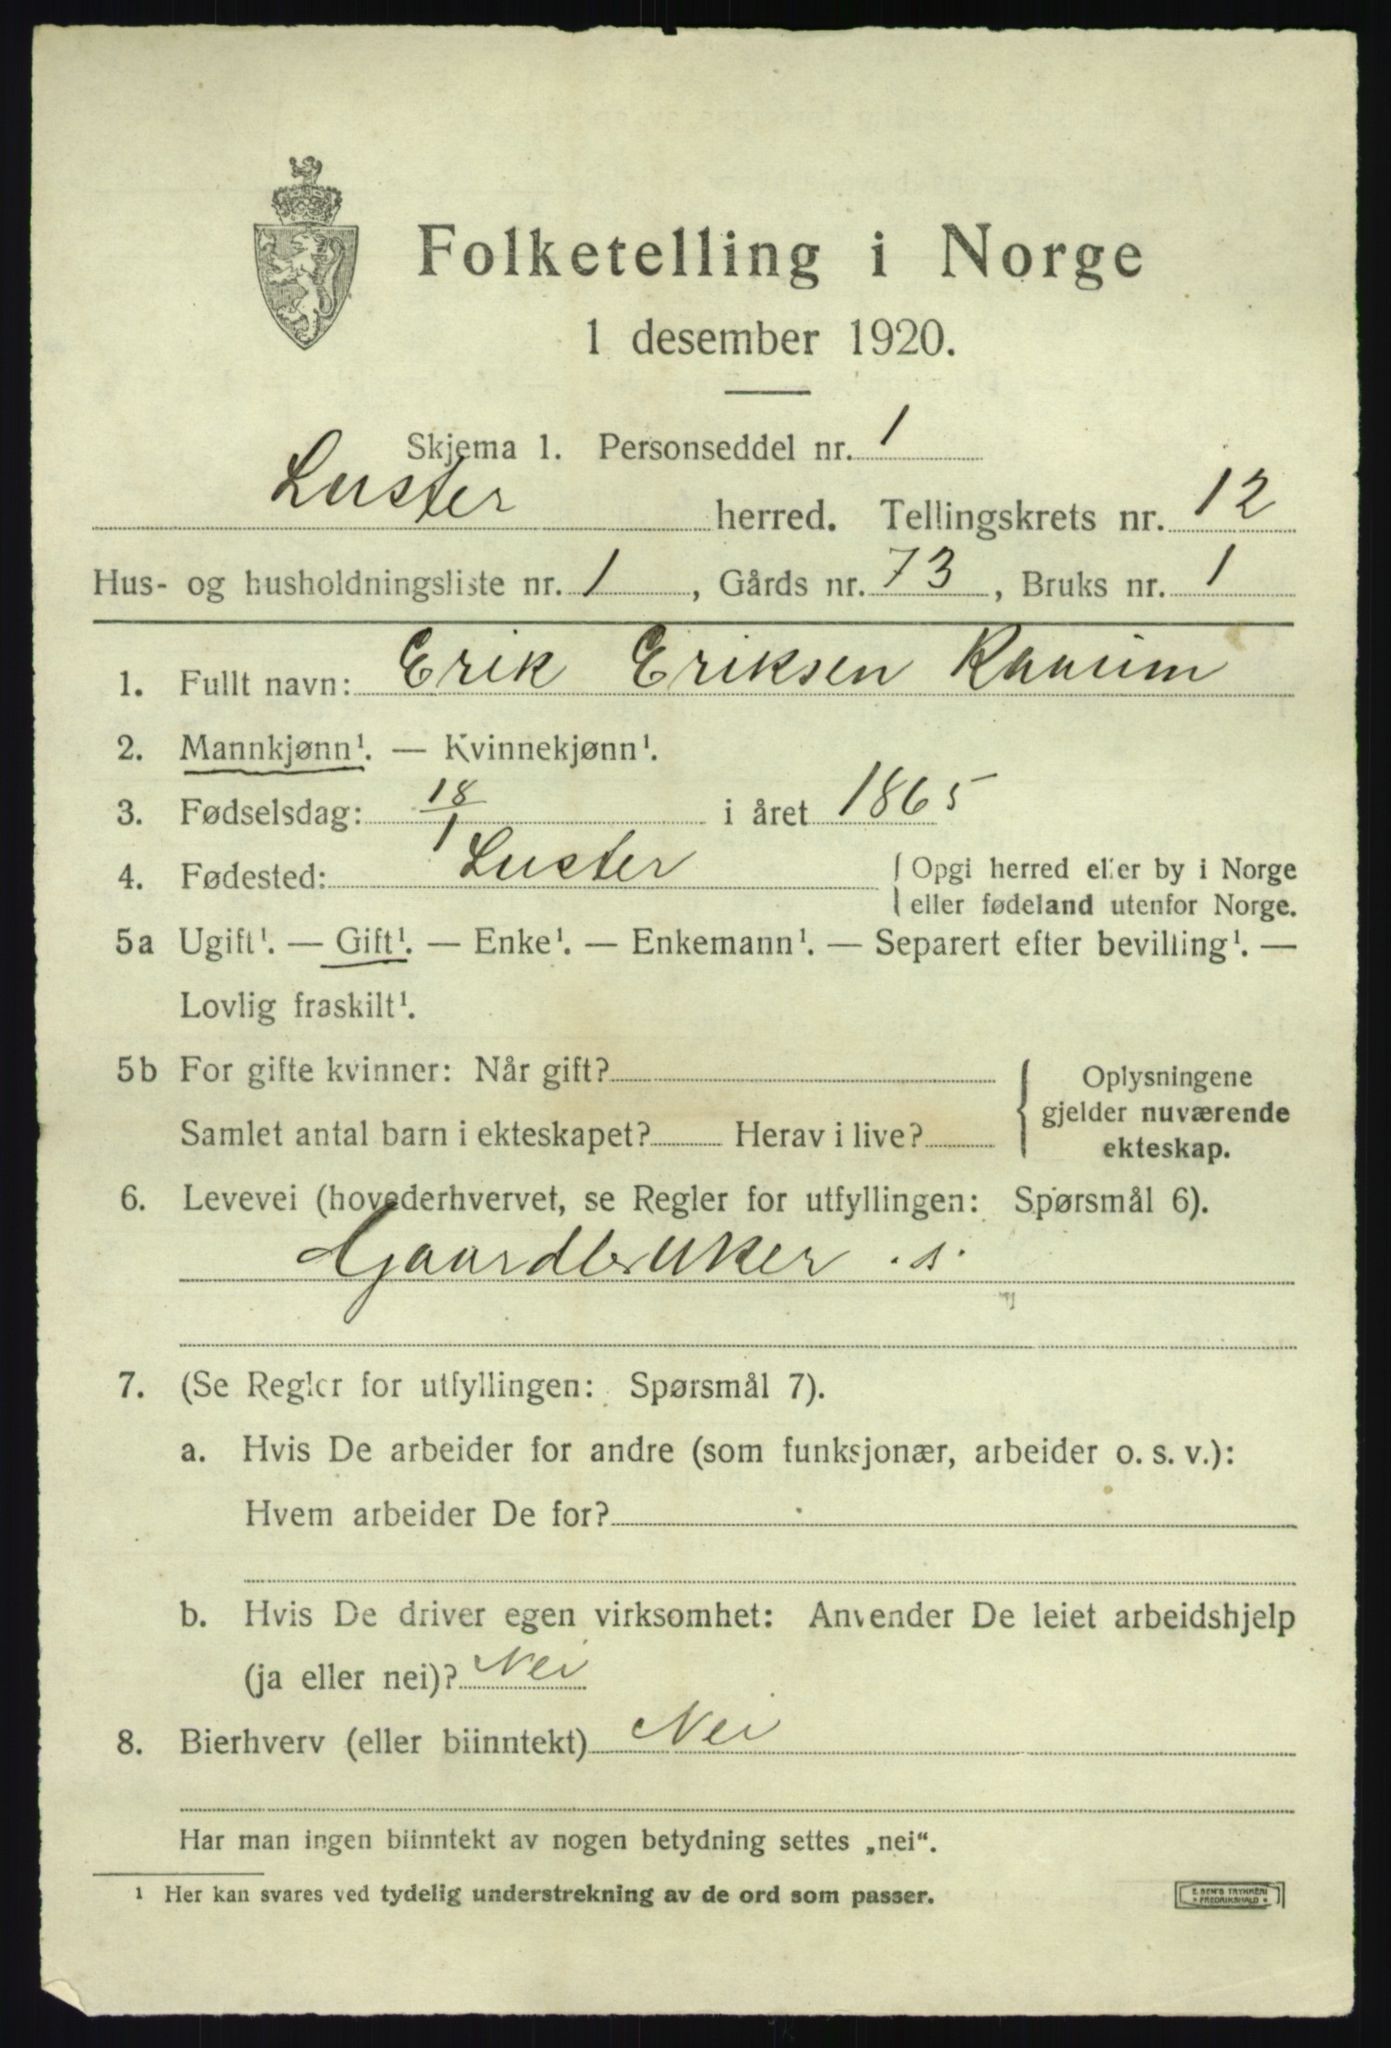 Folketelling i Norge
1 desember 1920.
Skjema 1. Personseddel nr. 1
Luster herred. Tellingskrets nr. 12
Hus- og husholdningsliste nr. 1, Gårds nr. 73, Bruks nr. 1
1. Fullt navn: Erik Eriksen Raaum
2. Mannkjønn¹. — Kvinnekjønn¹.
3. Fødselsdag: 18/1 i året 1865
4. Fødested: Luster { Opgi herred eller by i Norge
eller fødeland utenfor Norge.
5a Ugift¹. — Gift¹. — Enke¹. — Enkemann¹. — Separert efter bevilling¹. —
Lovlig fraskilt¹.
5b For gifte kvinner: Når gift? { Oplysningene
gjelder nuværende
Samlet antal barn i ekteskapet? Herav i live?
ekteskap.
6. Levevei (hovederhvervet, se Regler for utfyllingen: Spørsmål 6).
Gaardbruker .s.
7. (Se Regler for utfyllingen: Spørsmål 7).
a. Hvis De arbeider for andre (som funksjonær, arbeider o. s. v.):
Hvem arbeider De for?
b. Hvis De driver egen virksomhet: Anvender De leiet arbeidshjelp
(ja eller nei)? Nei
8. Bierhverv (eller biinntekt) Nei
Har man ingen biinntekt av nogen betydning settes „nei“.
¹ Her kan svares ved tydelig understrekning av de ord som passer.
TRYKKERI
FREDRIKSHALD